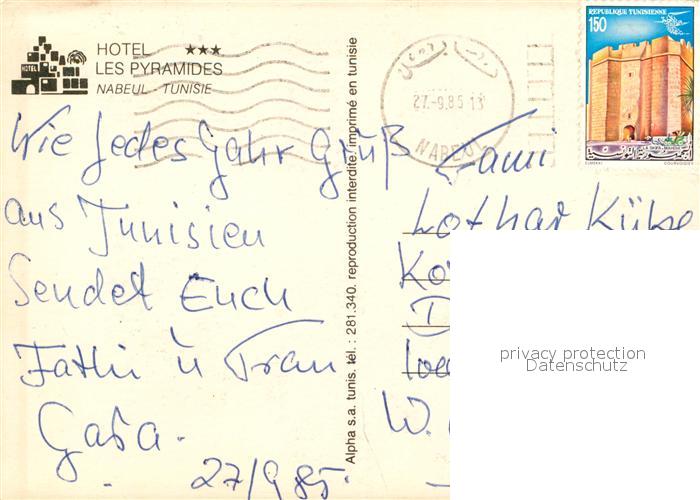 HOTEL ★★★
LES PYRAMIDES
NABEUL - TUNISIE
HOTEL
Wie jedes Jahr Grüß
aus Tunisien
Sendet Euch
Fathi u Frau
27/9 85.
Alpha s.a. tunis. tel.: 281.340. reproduction interdite. imprimé en tunisie
27.-9.85 13
NABEUL
REPUBLIQUE TUNISIENNE
150
الجمهورية التونسية
Fami
Lothar
W.
privacy protection
Datenschutz